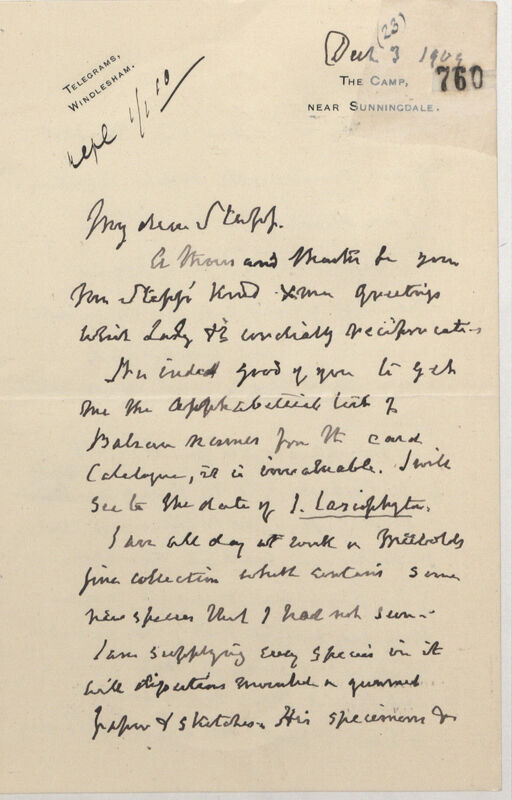 (23)
Dec 3 1909
760
TELEGRAMS,
WINDLESHAM.
THE CAMP,
NEAR SUNNINGDALE.
repl 1/1 10
My dear Stapf.
A thousand thanks for your
Xmas greetings
which Lady H cordially reciprocates
It is indeed good of you to get
me the alphabetical list of
Balsam names from the card
Catalogue, it is invaluable. I will
see to the date of I. Lasiophyton.
I am all day at work on Meebolds
fine collection which contains some
new species that I had not seen -
I am supplying every species in it
with dissections mounted on gummed
paper & sketches. His specimens &